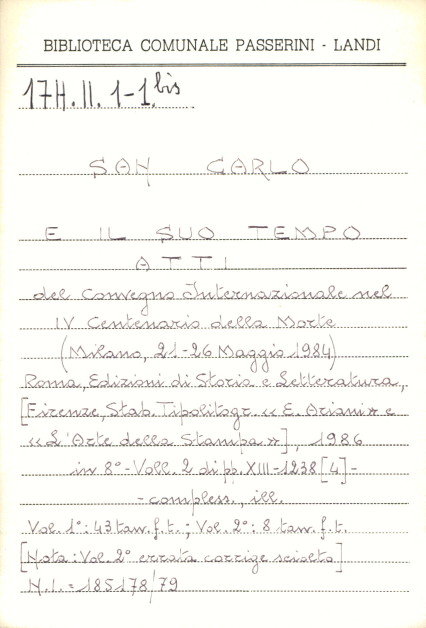 BIBLIOTECA COMUNALE PASSERINI - LANDI
17H.II. 1-1.bis
SAN CARLO
E IL SUO TEMPO
ATTI
del Convegno Internazionale nel
IV Centenario della Morte
(Milano, 21-26 Maggio 1984)
Roma, Edizioni di Storia e Letteratura,
[Firenze, Stab. Tipolitogr. « E. Ariani» e
«L'Arte della Stampa»], 1986
in 8° - Voll. 2 di pp. XIII-1238 [4] -
- compless., ill.
Vol. 1°: 43 tav. f.t. ; Vol. 2°: 8 tav. f.t.
[Nota: Vol. 2° errata corrige sciolto]
N.I. = 185178/79